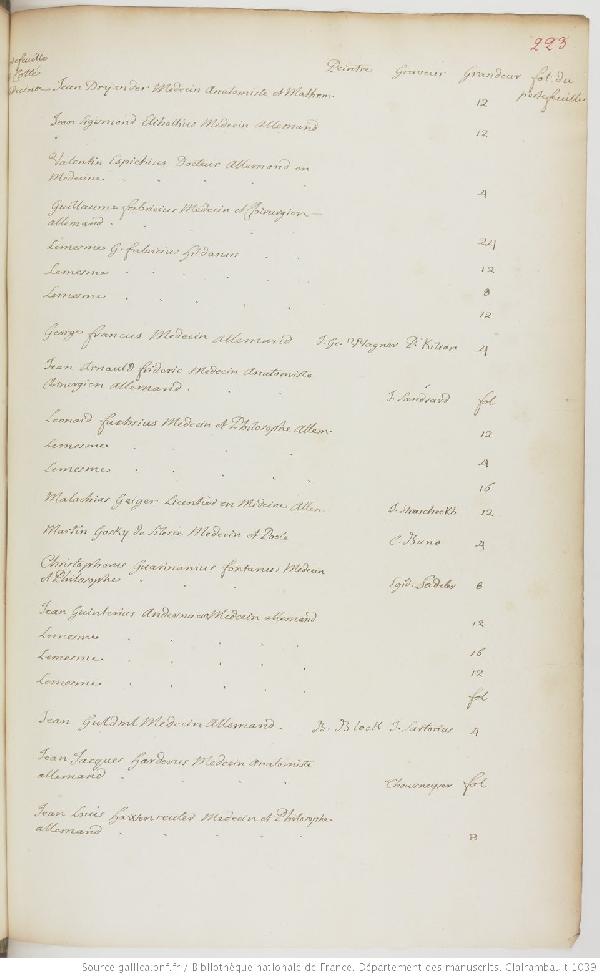 223
Peintre Graveur Grandeur fol. du
portefeuille
Jean Dryander Medecin Anatomiste et Mathem.
12
Jean Sigismond Elsholtius Medecin Allemand
12
Valentin Espichius Docteur Allemand en
Medecine
4
Guillaume fabricius Medecin et Chirurgien
allemand
24
Lemesme G. fabricius Hildanus
12
Lemesme
8
Lemesme
12
George francus Medecin Allemand J. Ge. Wagner P. Kilian 4
Jean Arnauld frideric Medecin Anatomiste
Chirurgien Allemand J. Sandrard fol
Leonard fuchsius Medecin et Philosophe Allem.
12
Lemesme
4
Lemesme
16
Malachias Geiger Licentier en Medecine Allem. 12
Martin Gosky de Silesie Medecin et Poete C. Buno 4
Christophorus Guarinonius fontanus Medecin
et Philosophe Egid. Sadeler 8
Jean Guinterius Andernac Medecin allemand
12
Lemesme
16
Lemesme
12
Lemesme
fol
Jean Medecin Allemand B. Block J. Sartorius 4
Jean Jacques Harderus Medecin Anatomiste
allemand fol
Jean Louis Medecin et Philosophe
allemand
8
Source gallica.bnf.fr / Bibliothèque nationale de France. Département des manuscrits. Clairambault 1039